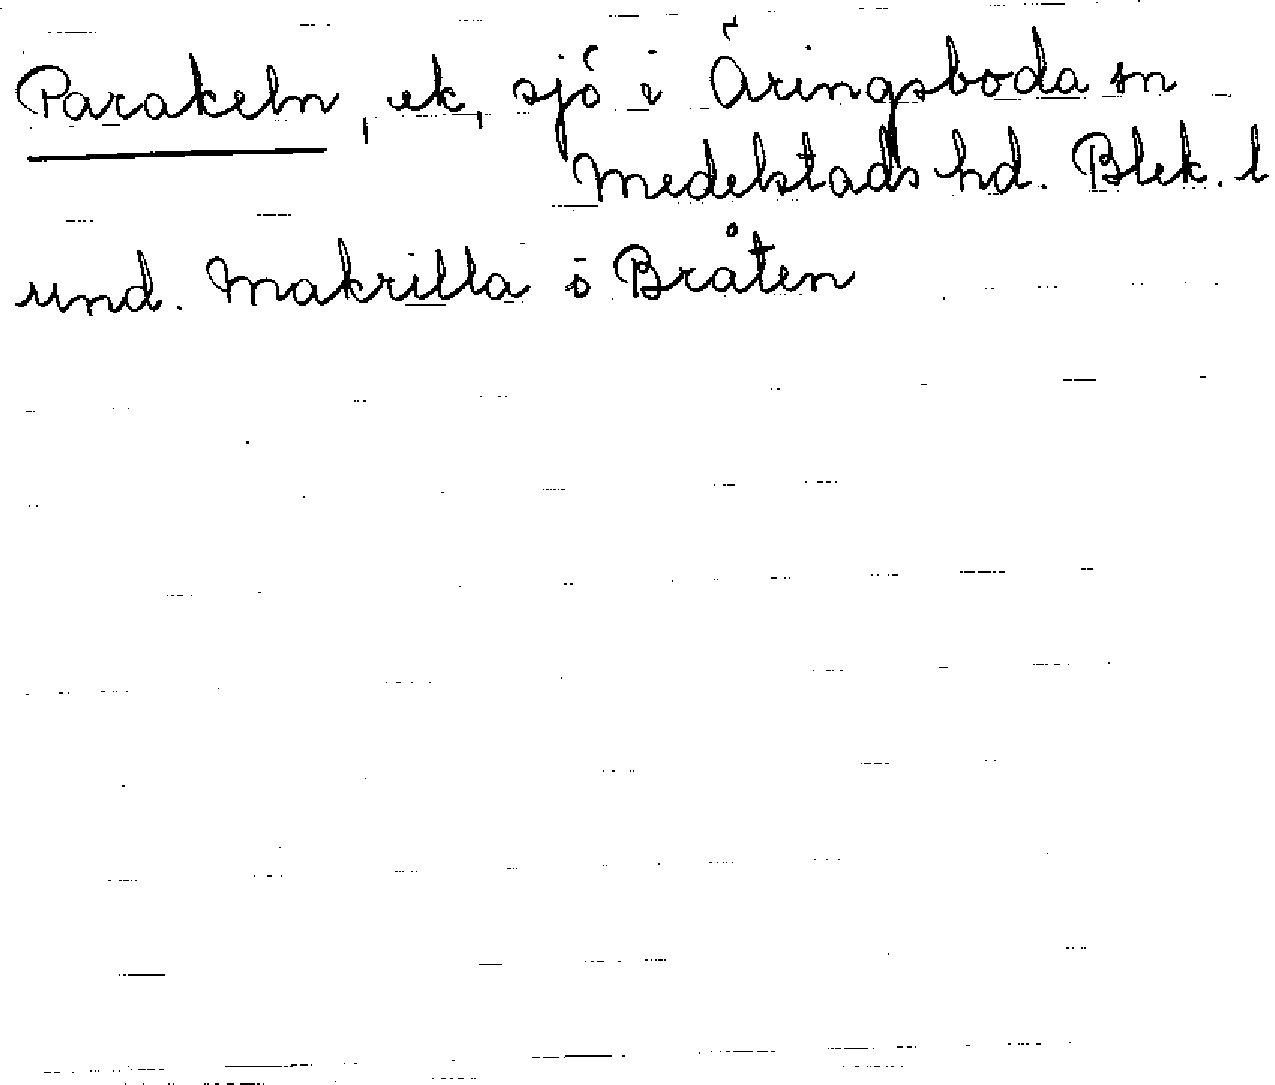 Parakeln, ek, sjö i Åringsboda sn
Medelstads hd. Blek. l
und. Makrilla o Bråten